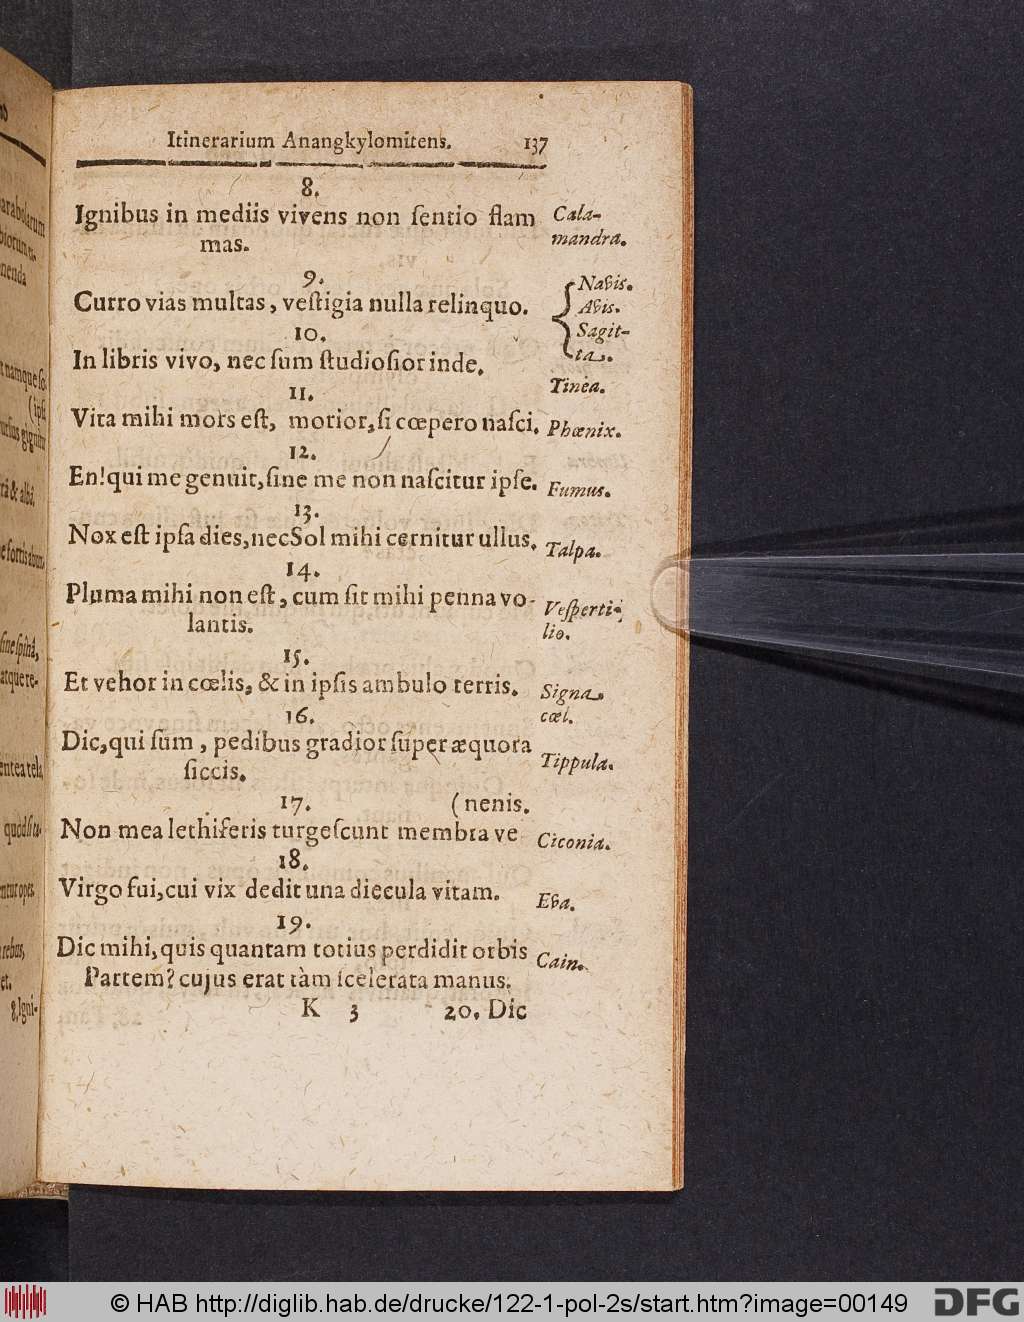 Itinerarium Anangkylomitens. 137
8.
Ignibus in mediis vivens non ſentio flam
mas.
Cala-
mandra.
9.
Curro vias multas, veſtigia nulla relinquo.
Navis.
Avis.
Sagit-
ta.
10.
In libris vivo, nec ſum ſtudioſior inde.
Tinea.
11.
Vita mihi mors eſt, morior, ſi cœpero naſci.
Phœnix.
12.
En! qui me genuit, ſine me non naſcitur ipſe.
Fumus.
13.
Nox eſt ipſa dies, nec Sol mihi cernitur ullus.
Talpa.
14.
Pluma mihi non eſt, cum ſit mihi penna vo-
lantis.
Veſperti-
lio.
15.
Et vehor in cœlis, & in ipſis ambulo terris.
Signa
cœl.
16.
Dic, qui ſum, pedibus gradior ſuper æquora
ſiccis.
Tippula.
17. (nenis.
Non mea lethiferis turgeſcunt membra ve
Ciconia.
18.
Virgo fui, cui vix dedit una diecula vitam.
Eva.
19.
Dic mihi, quis quantam totius perdidit orbis
Partem? cujus erat tàm ſcelerata manus.
Cain.
K 3 20. Dic
© HAB http://diglib.hab.de/drucke/122-1-pol-2s/start.htm?image=00149
DFG